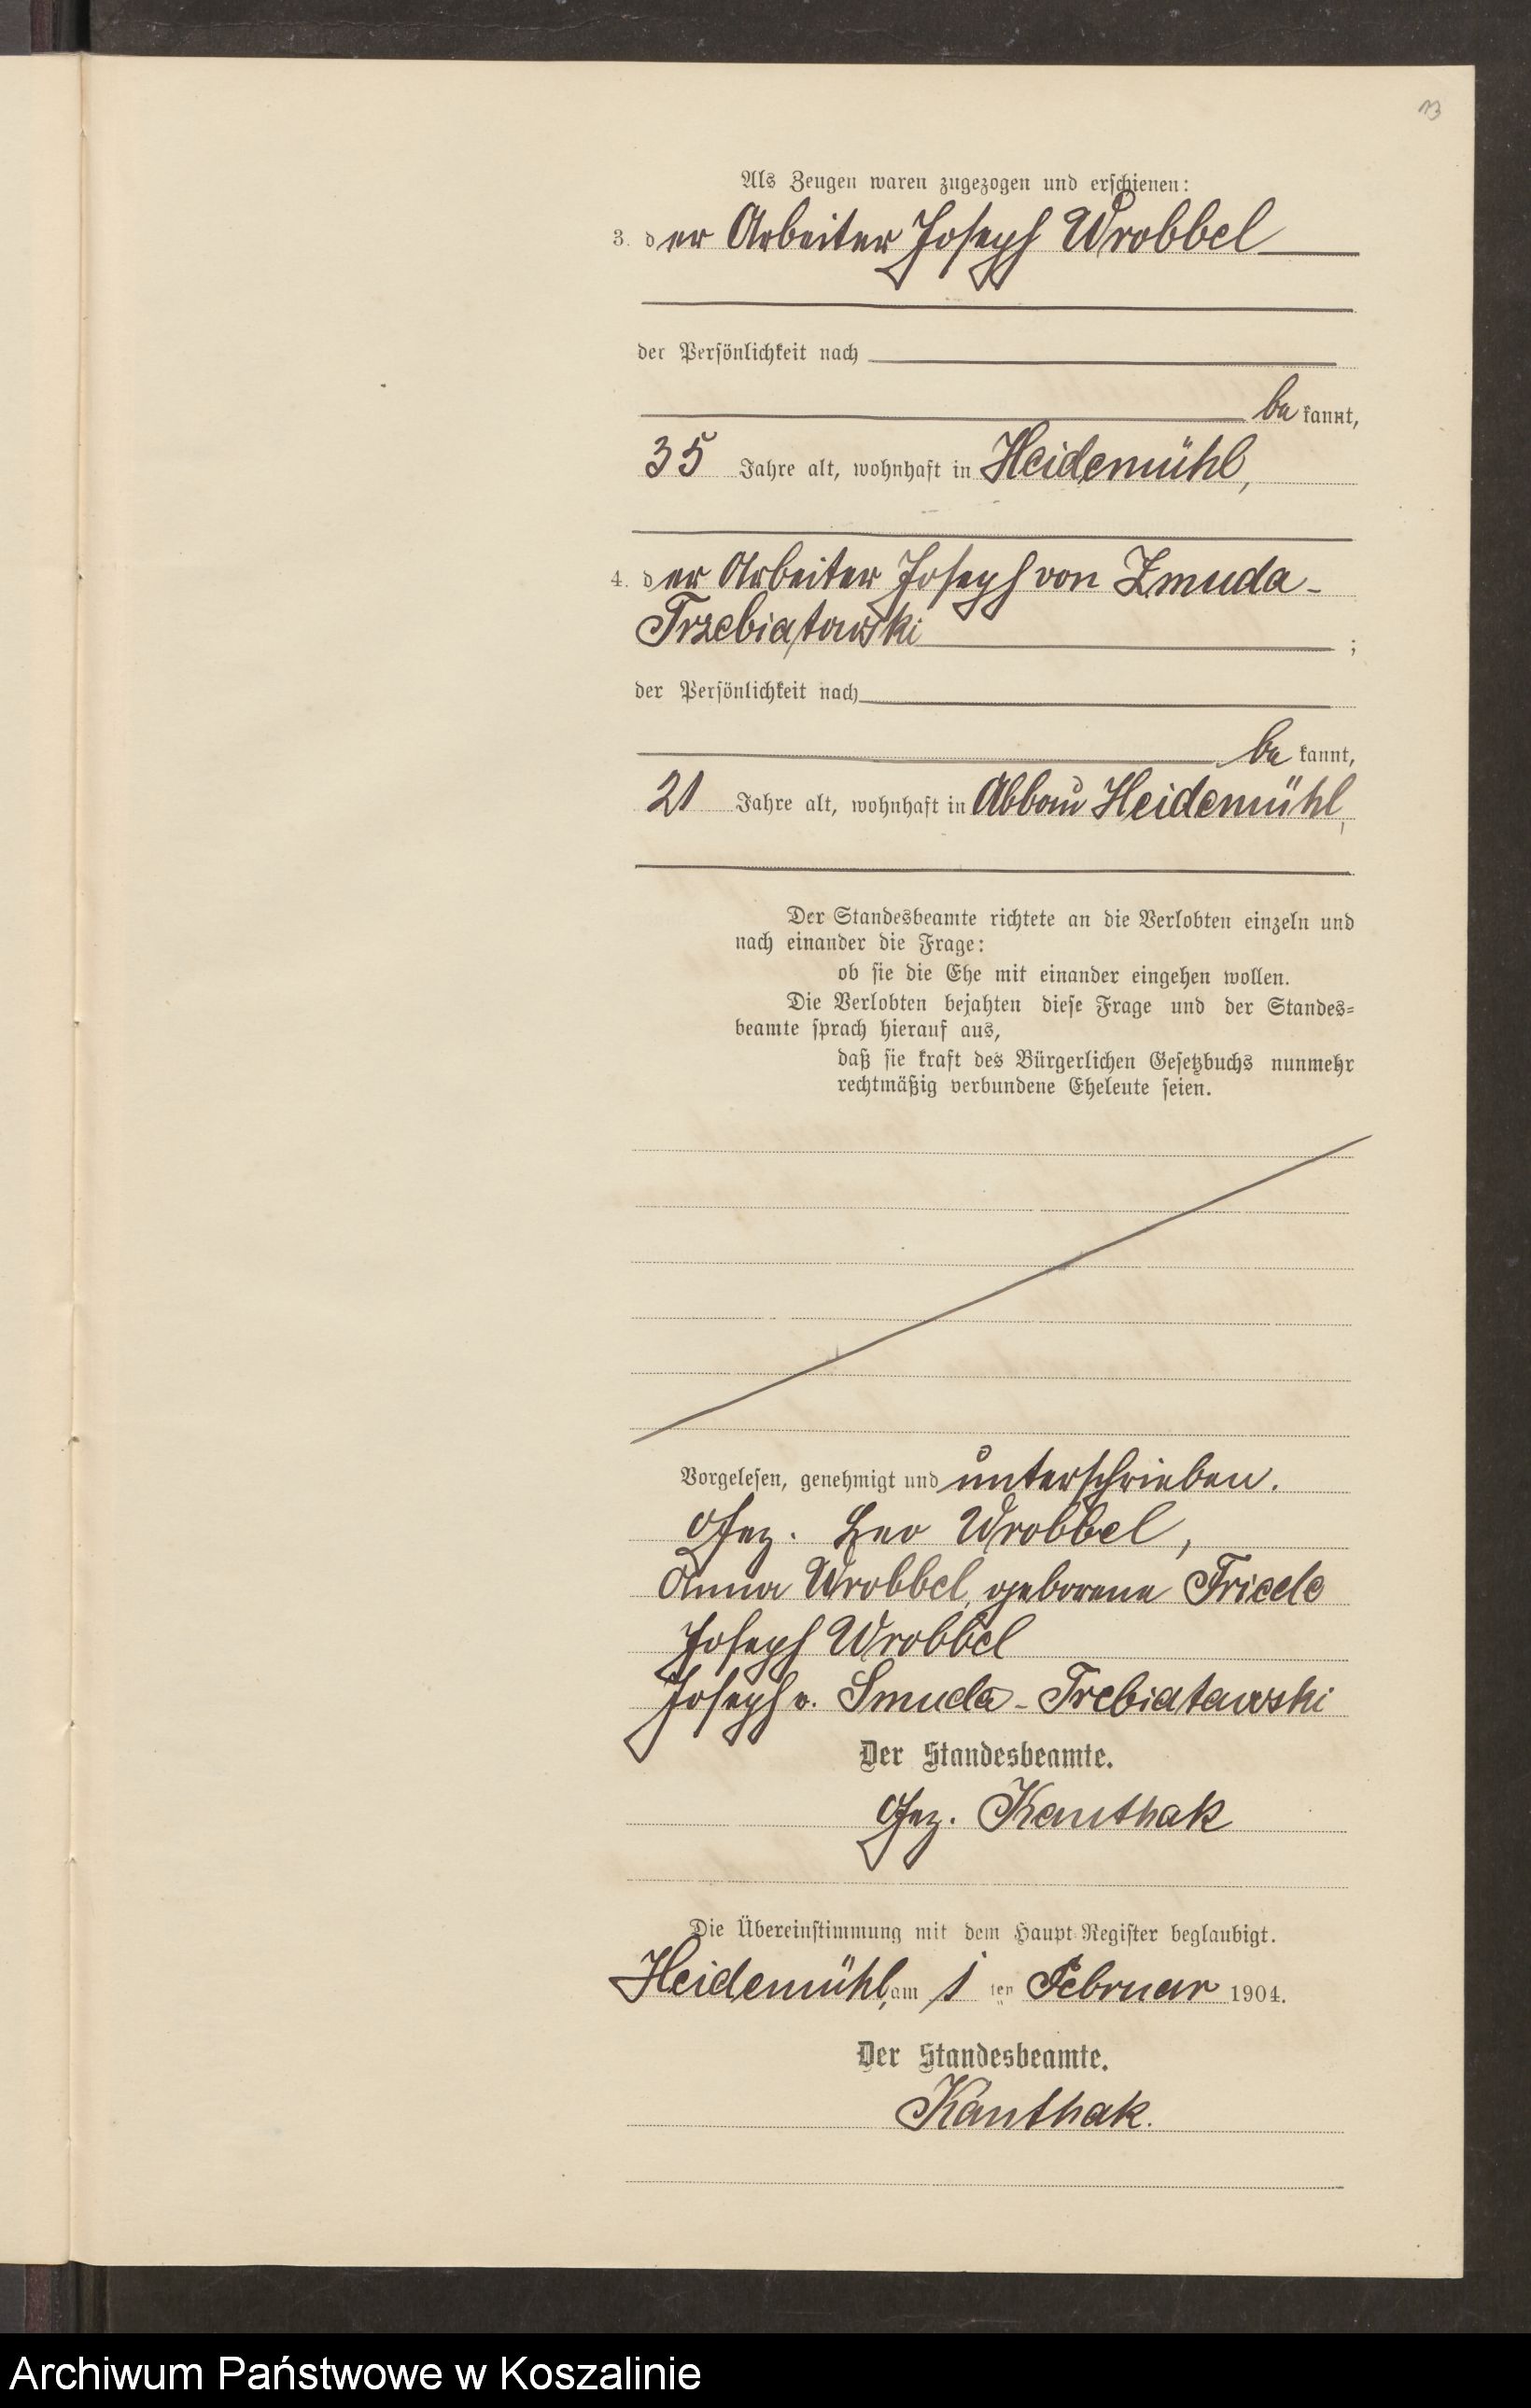 13
Als Zeugen waren zugezogen und erschienen:
3. der Arbeiter Joseph Wrobbel
der Persönlichkeit nach
bekannt,
35 Jahre alt, wohnhaft in Heidemühl,
4. der Arbeiter Joseph von Zmuda-
Trzebiatowski ;
der Persönlichkeit nach
bekannt,
21 Jahre alt, wohnhaft in Abbau Heidemühl,
Der Standesbeamte richtete an die Verlobten einzeln und
nach einander die Frage:
ob sie die Ehe mit einander eingehen wollen.
Die Verlobten bejahten diese Frage und der Standes-
beamte sprach hierauf aus,
daß sie kraft des Bürgerlichen Gesetzbuchs nunmehr
rechtmäßig verbundene Eheleute seien.
Vorgelesen, genehmigt und unterschrieben.
Gez. Leo Wrobbel,
Anna Wrobbel, geborene Friede
Joseph Wrobbel
Joseph v. Smuda-Trebiatowski
Der Standesbeamte.
Gez. Kanthak
Die Übereinstimmung mit dem Haupt-Register beglaubigt.
Heidemühl, am 1 ten Februar 1904.
Der Standesbeamte.
Kanthak.
Archiwum Państwowe w Koszalinie